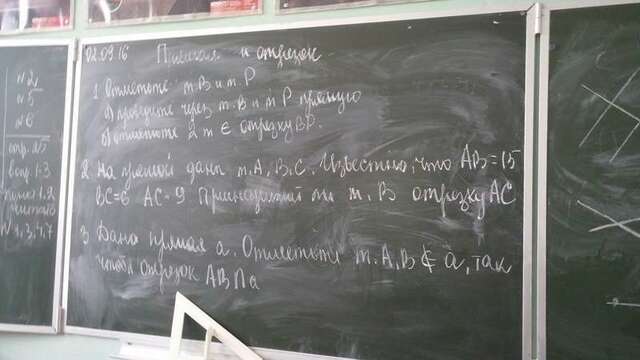 №2
№5
№6
стр. 25
вопр 1-3
пункт 1.2
№ 1,3,4,7
02.09.16 Прямая и отрезок
1 Отметьте т.В и т.Р
а) проведите через т.В и т Р прямую
б) отметьте 2 т ∈ отрезку ВР.
2. На прямой даны т.А,В,С. Известно, что АВ=15
ВС=6 АС=9 Принадлежит ли т. В отрезку АС
3 Дана прямая а. Отметьте т.А,В ∉ а, так
чтобы отрезок АВ∩а